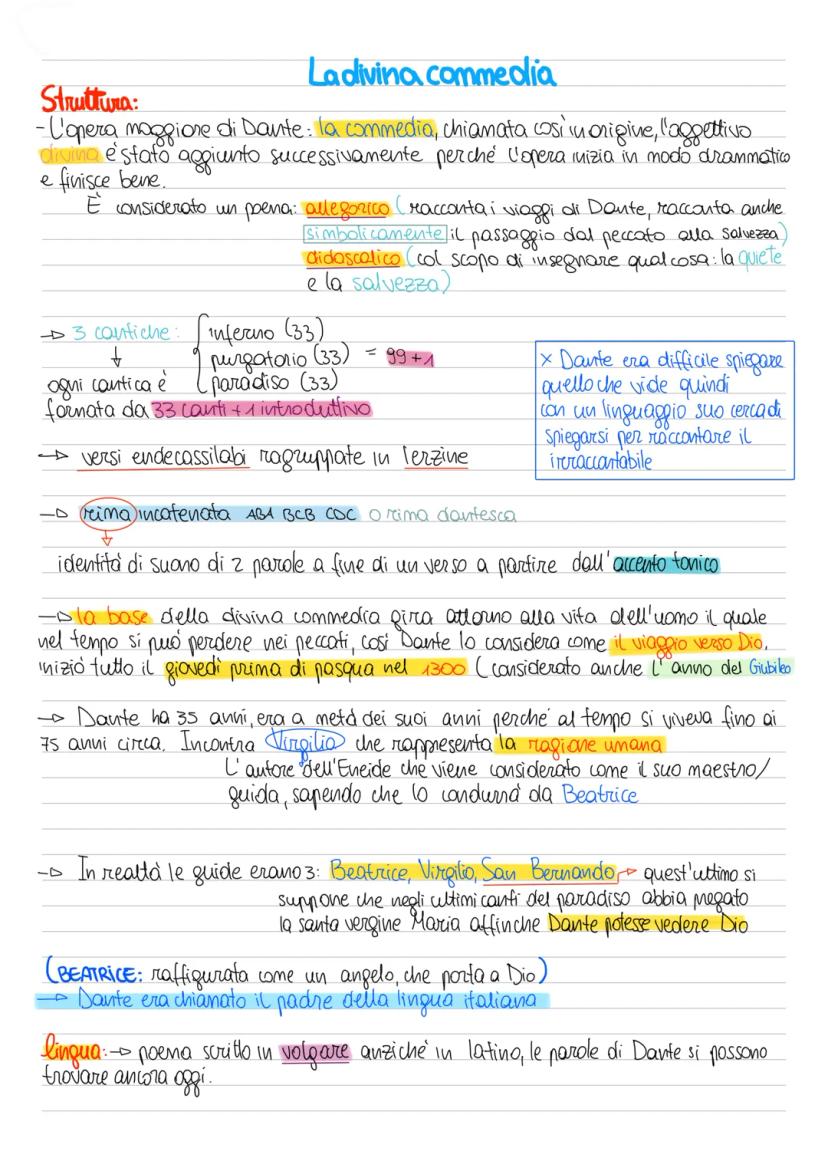 La divina commedia
Struttura:
- L'opera maggiore di Dante: la commedia, chiamata così in origine, l'aggettivo
divina è stato aggiunto successivamente perché l'opera inizia in modo drammatico
e finisce bene.
È considerato un poema: allegorico (racconta i viaggi di Dante, racconta anche
simbolicamente il passaggio dal peccato alla salvezza)
didascalico (col scopo di insegnare qualcosa: la quiete
e la salvezza)
→ 3 cantiche: inferno (33)
↓ purgatorio (33) = 99 + 1
ogni cantica è paradiso (33)
formata da 33 canti + 1 introduttivo
x Dante era difficile spiegare
quello che vide quindi
con un linguaggio suo cerca di
spiegarsi per raccontare il
irraccontabile
→ versi endecassilabi ragruppate in Terzine
→ rima incatenata ABA BCB CDC o rima dantesca
↓
identità di suono di 2 parole a fine di un verso a partire dall'accento tonico
→ la base della divina commedia gira attorno alla vita dell'uomo il quale
nel tempo si può perdere nei peccati, così Dante lo considera come il viaggio verso Dio.
iniziò tutto il giovedì prima di pasqua nel 1300 (considerato anche l'anno del Giubileo
→ Dante ha 35 anni, era a metà dei suoi anni perché al tempo si viveva fino ai
75 anni circa. Incontra Virgilio che rappresenta la ragione umana
L'autore dell'Eneide che viene considerato come il suo maestro/
guida, sapendo che lo condurrà da Beatrice
→ In realtà le guide erano 3: Beatrice, Virgilio, San Bernando → quest'ultimo si
suppone che negli ultimi canti del paradiso abbia pregato
la santa vergine Maria affinche Dante potesse vedere Dio
(BEATRICE: raffigurata come un angelo, che porta a Dio)
→ Dante era chiamato il padre della lingua italiana
lingua: → poema scritto in volgare anziché in latino, le parole di Dante si possono
trovare ancora oggi.